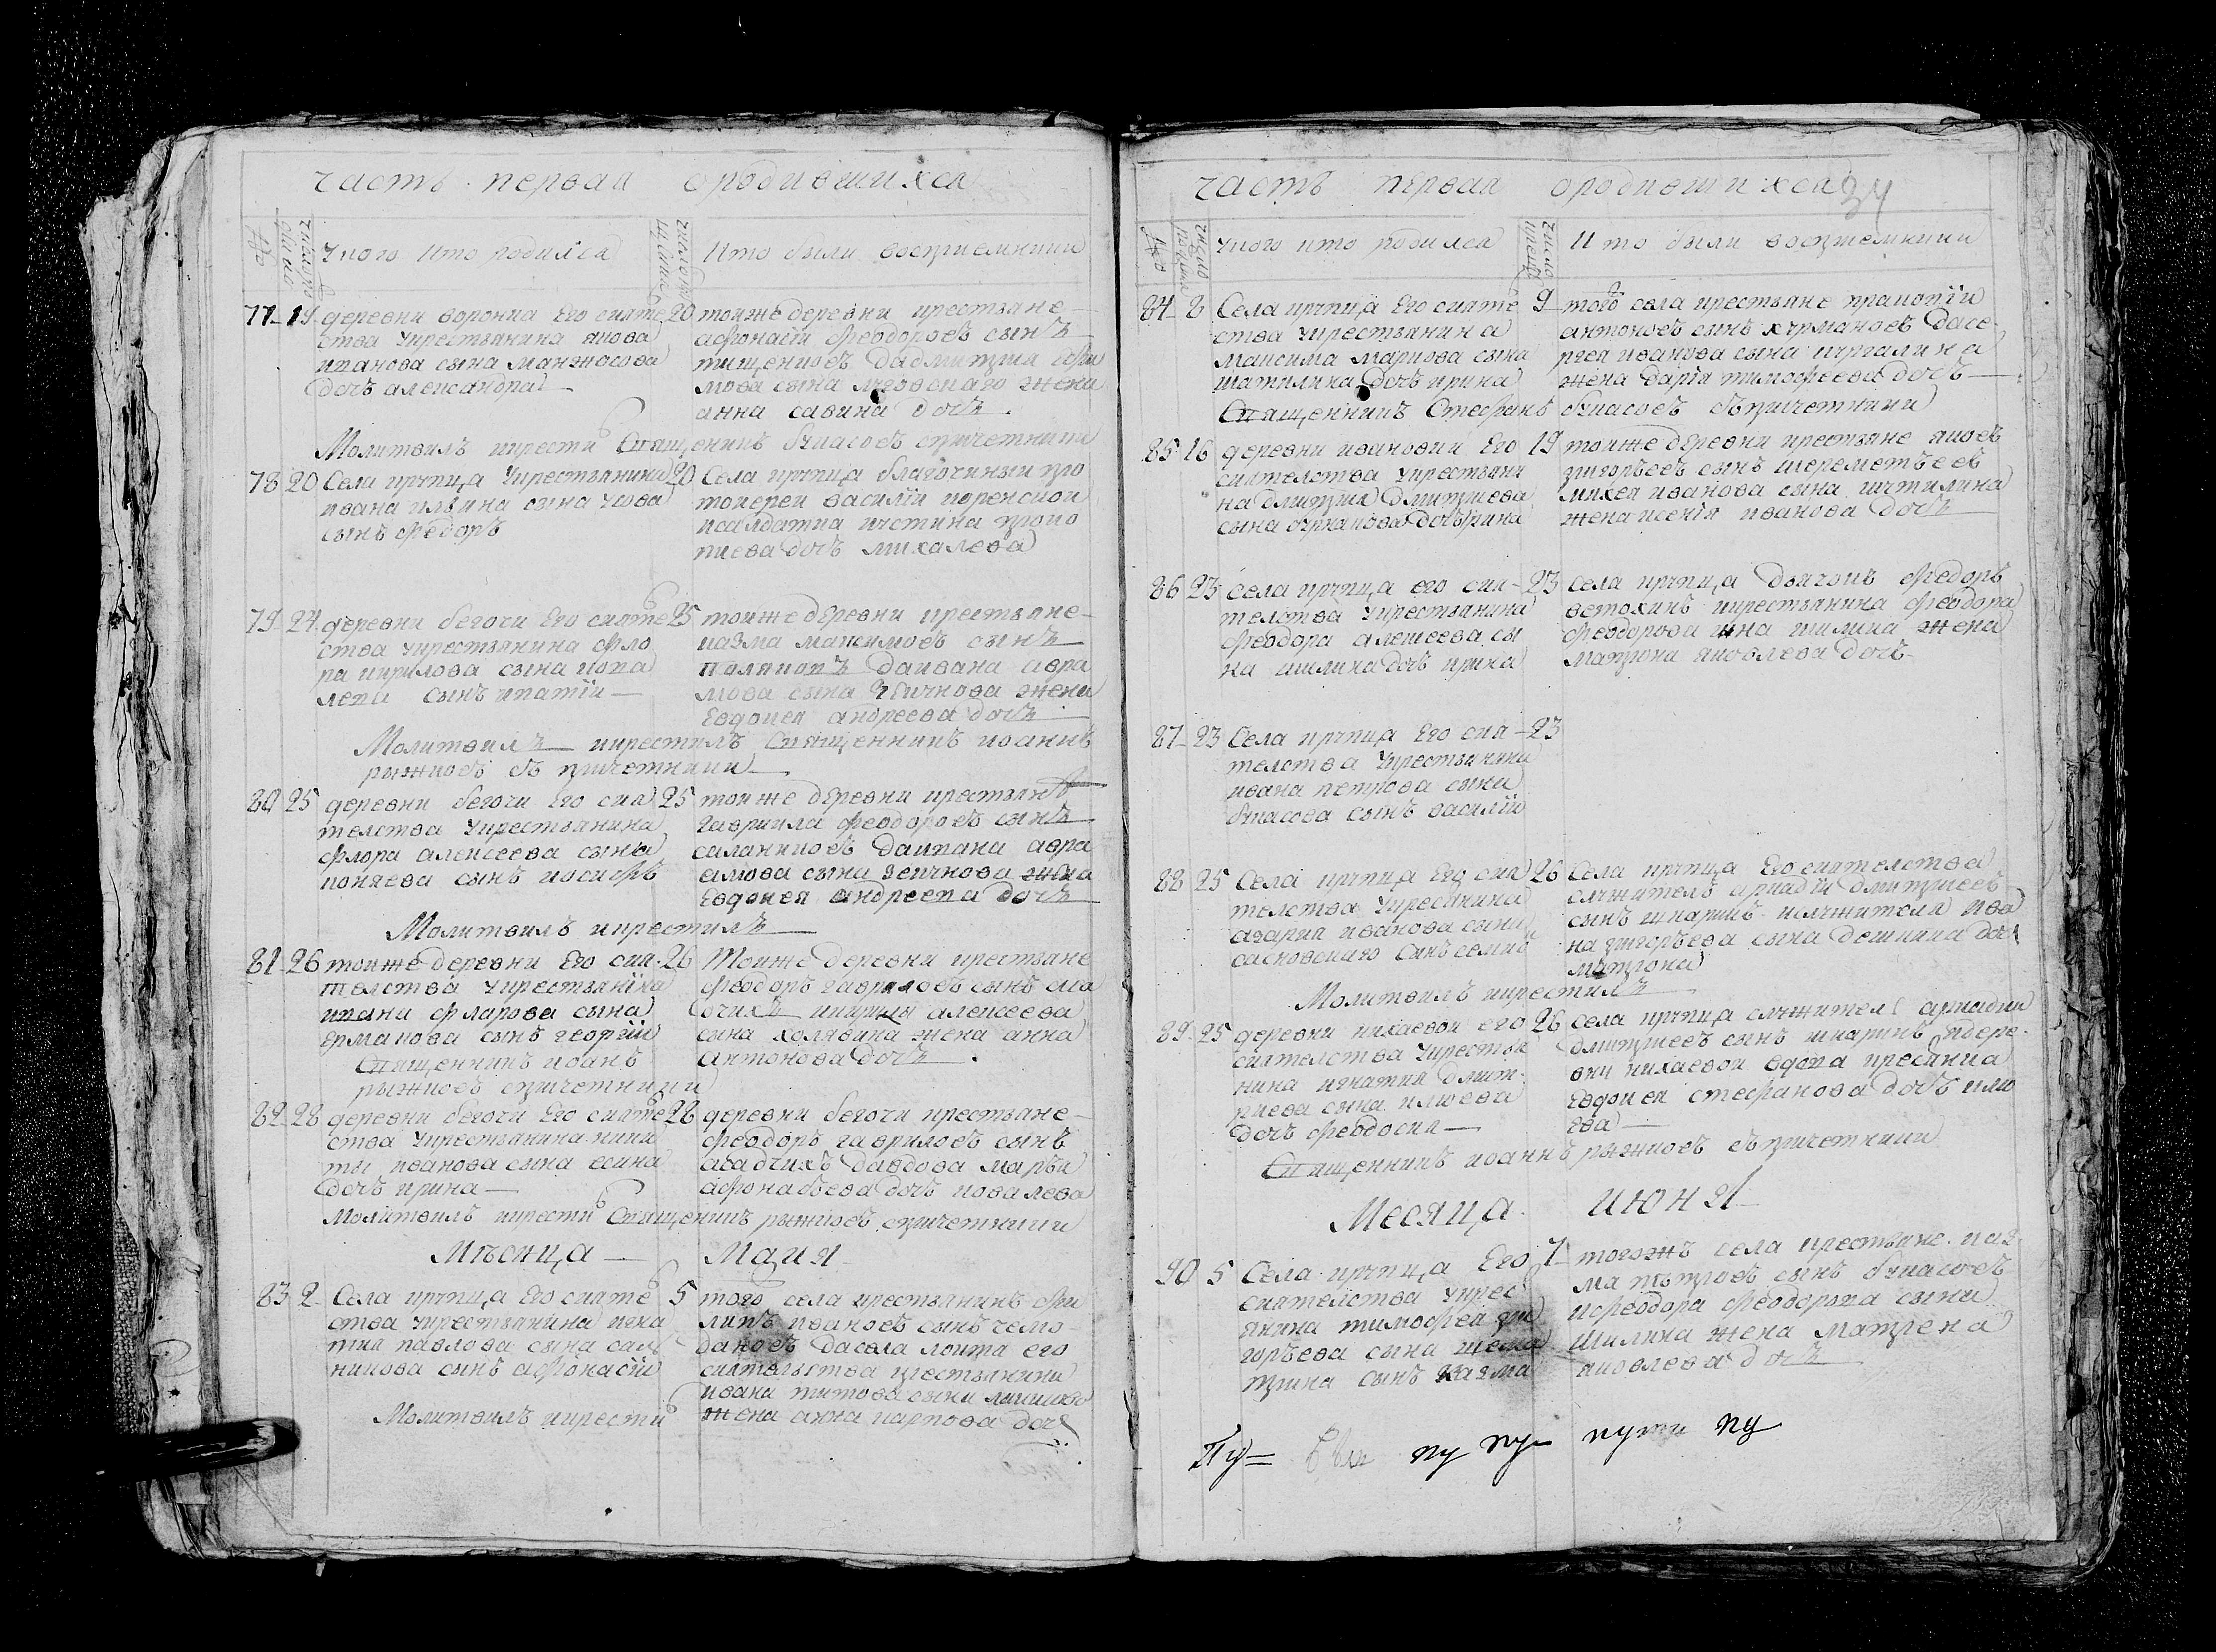 часть первая о родившихся
№
число рождение
У кого кто родился
число крещение
Кто были восприемники
77 19 деревни воронка Его сияте
ства укрестьянина якова
иванова сына манжосова
дочь александра
20 тоиже деревни крестьяне
афонасіи Феодоровъ сынъ
тищенковъ дадмитрия ефи
мова сына луговскаго жена
анна савина дочь
Молитвилъ икрестил Священникъ букасовъ спричетники
78 20 Села крупца Укрестьянина
ивана ильина сына Усова
сынъ федоръ
20 Села крупца благочинныи про
тоиереи василіи коренскои
исалдатка устина проко
пиева дочь михалева
79 24 деревни бегочи Его сияте
ства укрестьянина фло
ра кирилова сына копа
лепи сынъ ипатіи
25 тоиже деревни крестьяне
казма максимовъ сынъ
поляковъ даивана авра
мова сына
Евдокея андреева дочь
Молитвилъ икрестилъ Священникъ иоаннъ
рыжковъ съ причетники
80 25 деревни бегочи Его сия
телства укрестьянина
флора алексеева сына
коняева сынъ иосифъ
25 тоиже деревни крестьяне
гавриила феодоровъ сынъ
саланиковъ даивана авра
амова сына зеичнова жена
Евдокея андреева дочь
Молитвилъ икрестилъ
81 26 тоиже деревни Его сия
телства укрестьянина
ивана фларова сына
ермакова сынъ георгіи
26 Тоиже деревни крестьяне
феодоръ гавриловъ сынъ
алексеева
сына холявина жена анна
антонова дочь
Священникъ иоанъ
рыжковъ спричетники
82 28 деревни бегочи Его сияте
ства Укрестьянина ники
ты иванова сына есина
дочь ирина
28 деревни бегочи крестьяне
феодоръ гавриловъ сынъ
асадчихъ давдова марѣя
афонасьева дочь ковалева
Молитвилъ икрестил Священикъ рыжковъ спричетники
Мѣсяца Маия
83 2 Села крупца Его сияте
ства укрестьянина игна
тия павлова сына сал
никова сынъ афонасіи
5 того села крестьянинъ фи
липъ ивановъ сынъ чемо
дановъ дасела локтя его
сиятельства крестьянина
ивана титова сына
жена анна карпова дочь
Молитвилъ икрести
часть первая ородившихся
34
№
число рожден
Укого кто родился
число крещен
Кто были восприемники
84 8 Села крупца Его сияте
ства укрестьянина
максима маркова сына
шатилина дочь ирина
9 того села крестьяне пракопіи
антоновъ сынъ хурмановъ дасе
ргея иванова сына шугалина
жена дарія тимофеева дочь
Священникъ Стефанъ букасовъ съпричетники
85 16 деревни ивановки Его
сиятелства укрестьяни
на дмитрия Дмитриева
сына
19 тоиже деревни крестьяне яковъ
григорьевъ сынъ шереметьевъ
михея иванова сына шутилина
жена ксенія иванова дочь
86 23 села крупца его сия
телства Укрестьянина
Феодора алексеева сы
на шилина дочь ирина
23 села крупца дьячокъ федоръ
ветохинъ икрестьянина феодора
феодорова сына шилина жена
матрона яковлева дочь
87 23 Села крупца Его сия
телства Укрестьянина
ивана петрова сына
букасова сынъ василіи
23
88 25 Села крупца Его сия
телства Укресянина
азария иванова сына
сасновскиго сынъ семио
26 Села крупца Его сиятелства
служитель аркадіи дмитриевъ
сынъ шкаринъ ислужителя ива
на григорьева сына дешкина дочь
матрона
Молитвилъ икрестилъ
89 25 деревни никаевои его
сиятелства Укрестья
нина игнатия дмит
риева сына илюева
дочь феодосия
26 села крупца служитель аркадии
дмитриевъ сынъ шкаринъ идере
вни никаевои вдова кресянка
Евдокея стефанова дочь илю
ева
Священникъ иоаннъ рыжковъ съпричетники
Месяца июня
90 5 Села крупца Его
сиятелства укрес
янина тимофея гри
горьева сына
трина сынъ казма
7 тогожъ села крестьяне каз
ма петровъ сынъ букасовъ
ифеодора феодорова сына
Шилина жена матрена
яковлева дочь
Пу= ну ну нути ну